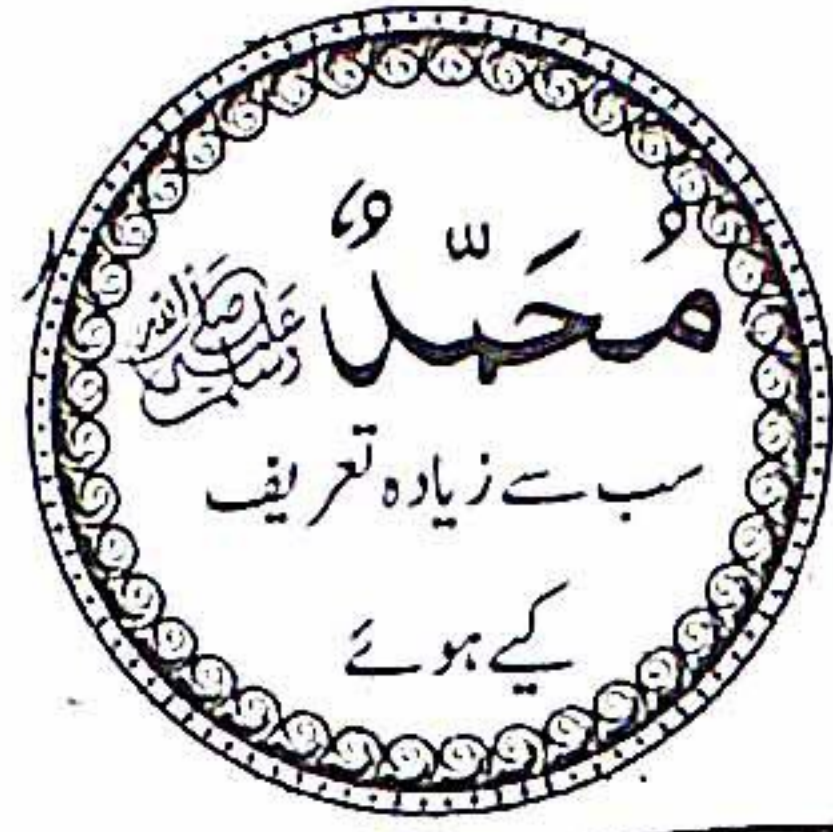 مُحَمَّدٌ صلى الله عليه وسلم
سب سے زیادہ تعریف
کیے ہوئے